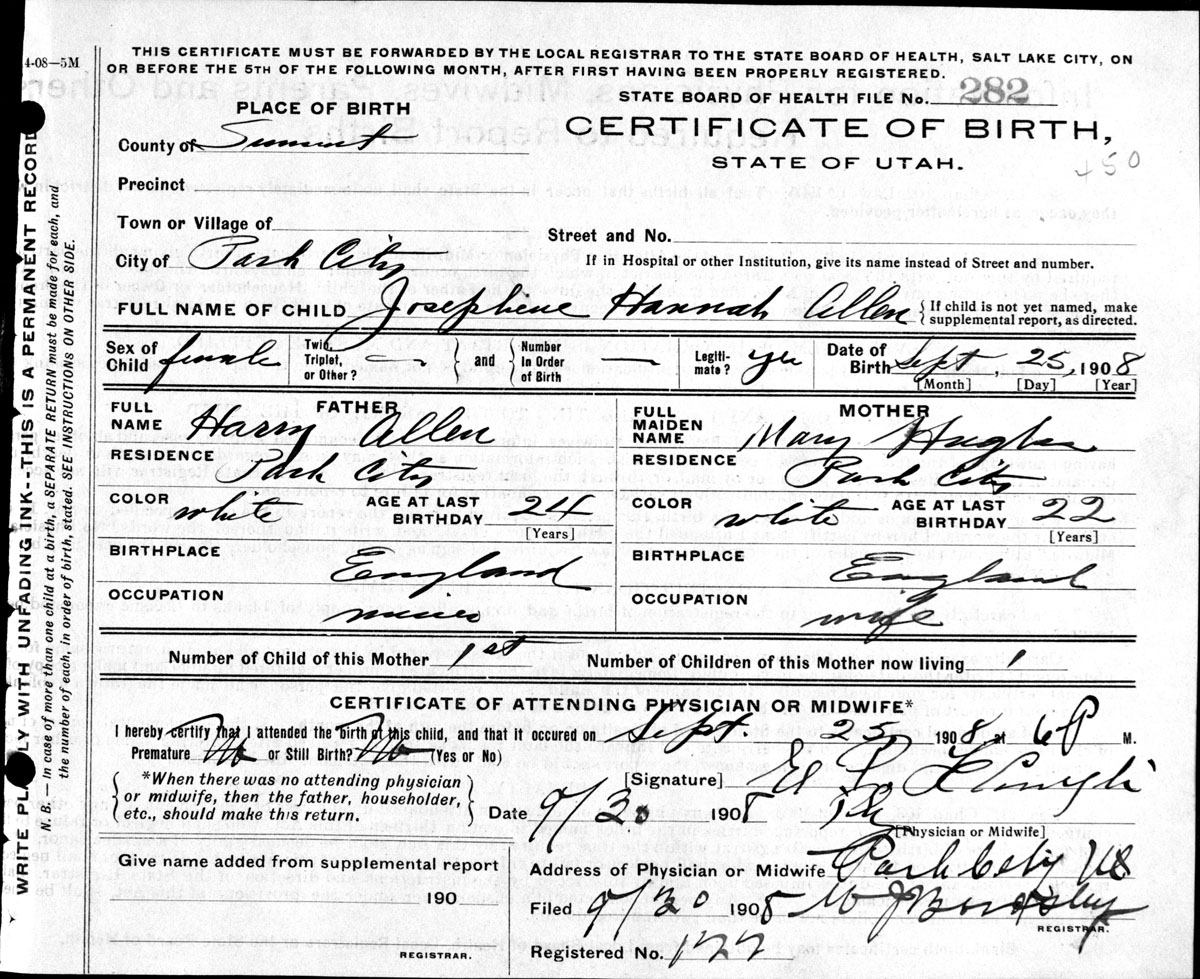 4-08—5M
THIS CERTIFICATE MUST BE FORWARDED BY THE LOCAL REGISTRAR TO THE STATE BOARD OF HEALTH, SALT LAKE CITY, ON
OR BEFORE THE 5TH OF THE FOLLOWING MONTH, AFTER FIRST HAVING BEEN PROPERLY REGISTERED.
STATE BOARD OF HEALTH FILE No. 282
CERTIFICATE OF BIRTH,
STATE OF UTAH.
450
PLACE OF BIRTH
County of Summit
Precinct
Town or Village of
Street and No.
City of Park City
If in Hospital or other Institution, give its name instead of Street and number.
FULL NAME OF CHILD Josephine Hannah Allen { If child is not yet named, make supplemental report, as directed.
Sex of Child female
Twin, Triplet, or Other? — } and { Number In Order of Birth —
Legiti- mate? yes
Date of Birth Sept 25, 1908
[Month] [Day] [Year]
FATHER
FULL NAME Harry Allen
RESIDENCE Park City
COLOR white AGE AT LAST BIRTHDAY 24
[Years]
BIRTHPLACE England
OCCUPATION
MOTHER
FULL MAIDEN NAME Mary
RESIDENCE Park City
COLOR white AGE AT LAST BIRTHDAY 22
[Years]
BIRTHPLACE England
OCCUPATION wife
Number of Child of this Mother 1st Number of Children of this Mother now living 1
CERTIFICATE OF ATTENDING PHYSICIAN OR MIDWIFE*
I hereby certify that I attended the birth of this child, and that it occured on Sept. 25 1908 at 6 P M.
Premature No or Still Birth? No (Yes or No)
{ *When there was no attending physician
or midwife, then the father, householder,
etc., should make this return. }
[Signature]
Date 9/30 1908
[Physician or Midwife]
Give name added from supplemental report
190
REGISTRAR.
Address of Physician or Midwife Park City
Filed 9/30 1908
REGISTRAR.
Registered No. 122
WRITE PLAINLY WITH UNFADING INK--THIS IS A PERMANENT RECORD
N. B.— In case of more than one child at a birth, a SEPARATE RETURN must be made for each, and
the number of each, in order of birth, stated. SEE INSTRUCTIONS ON OTHER SIDE.